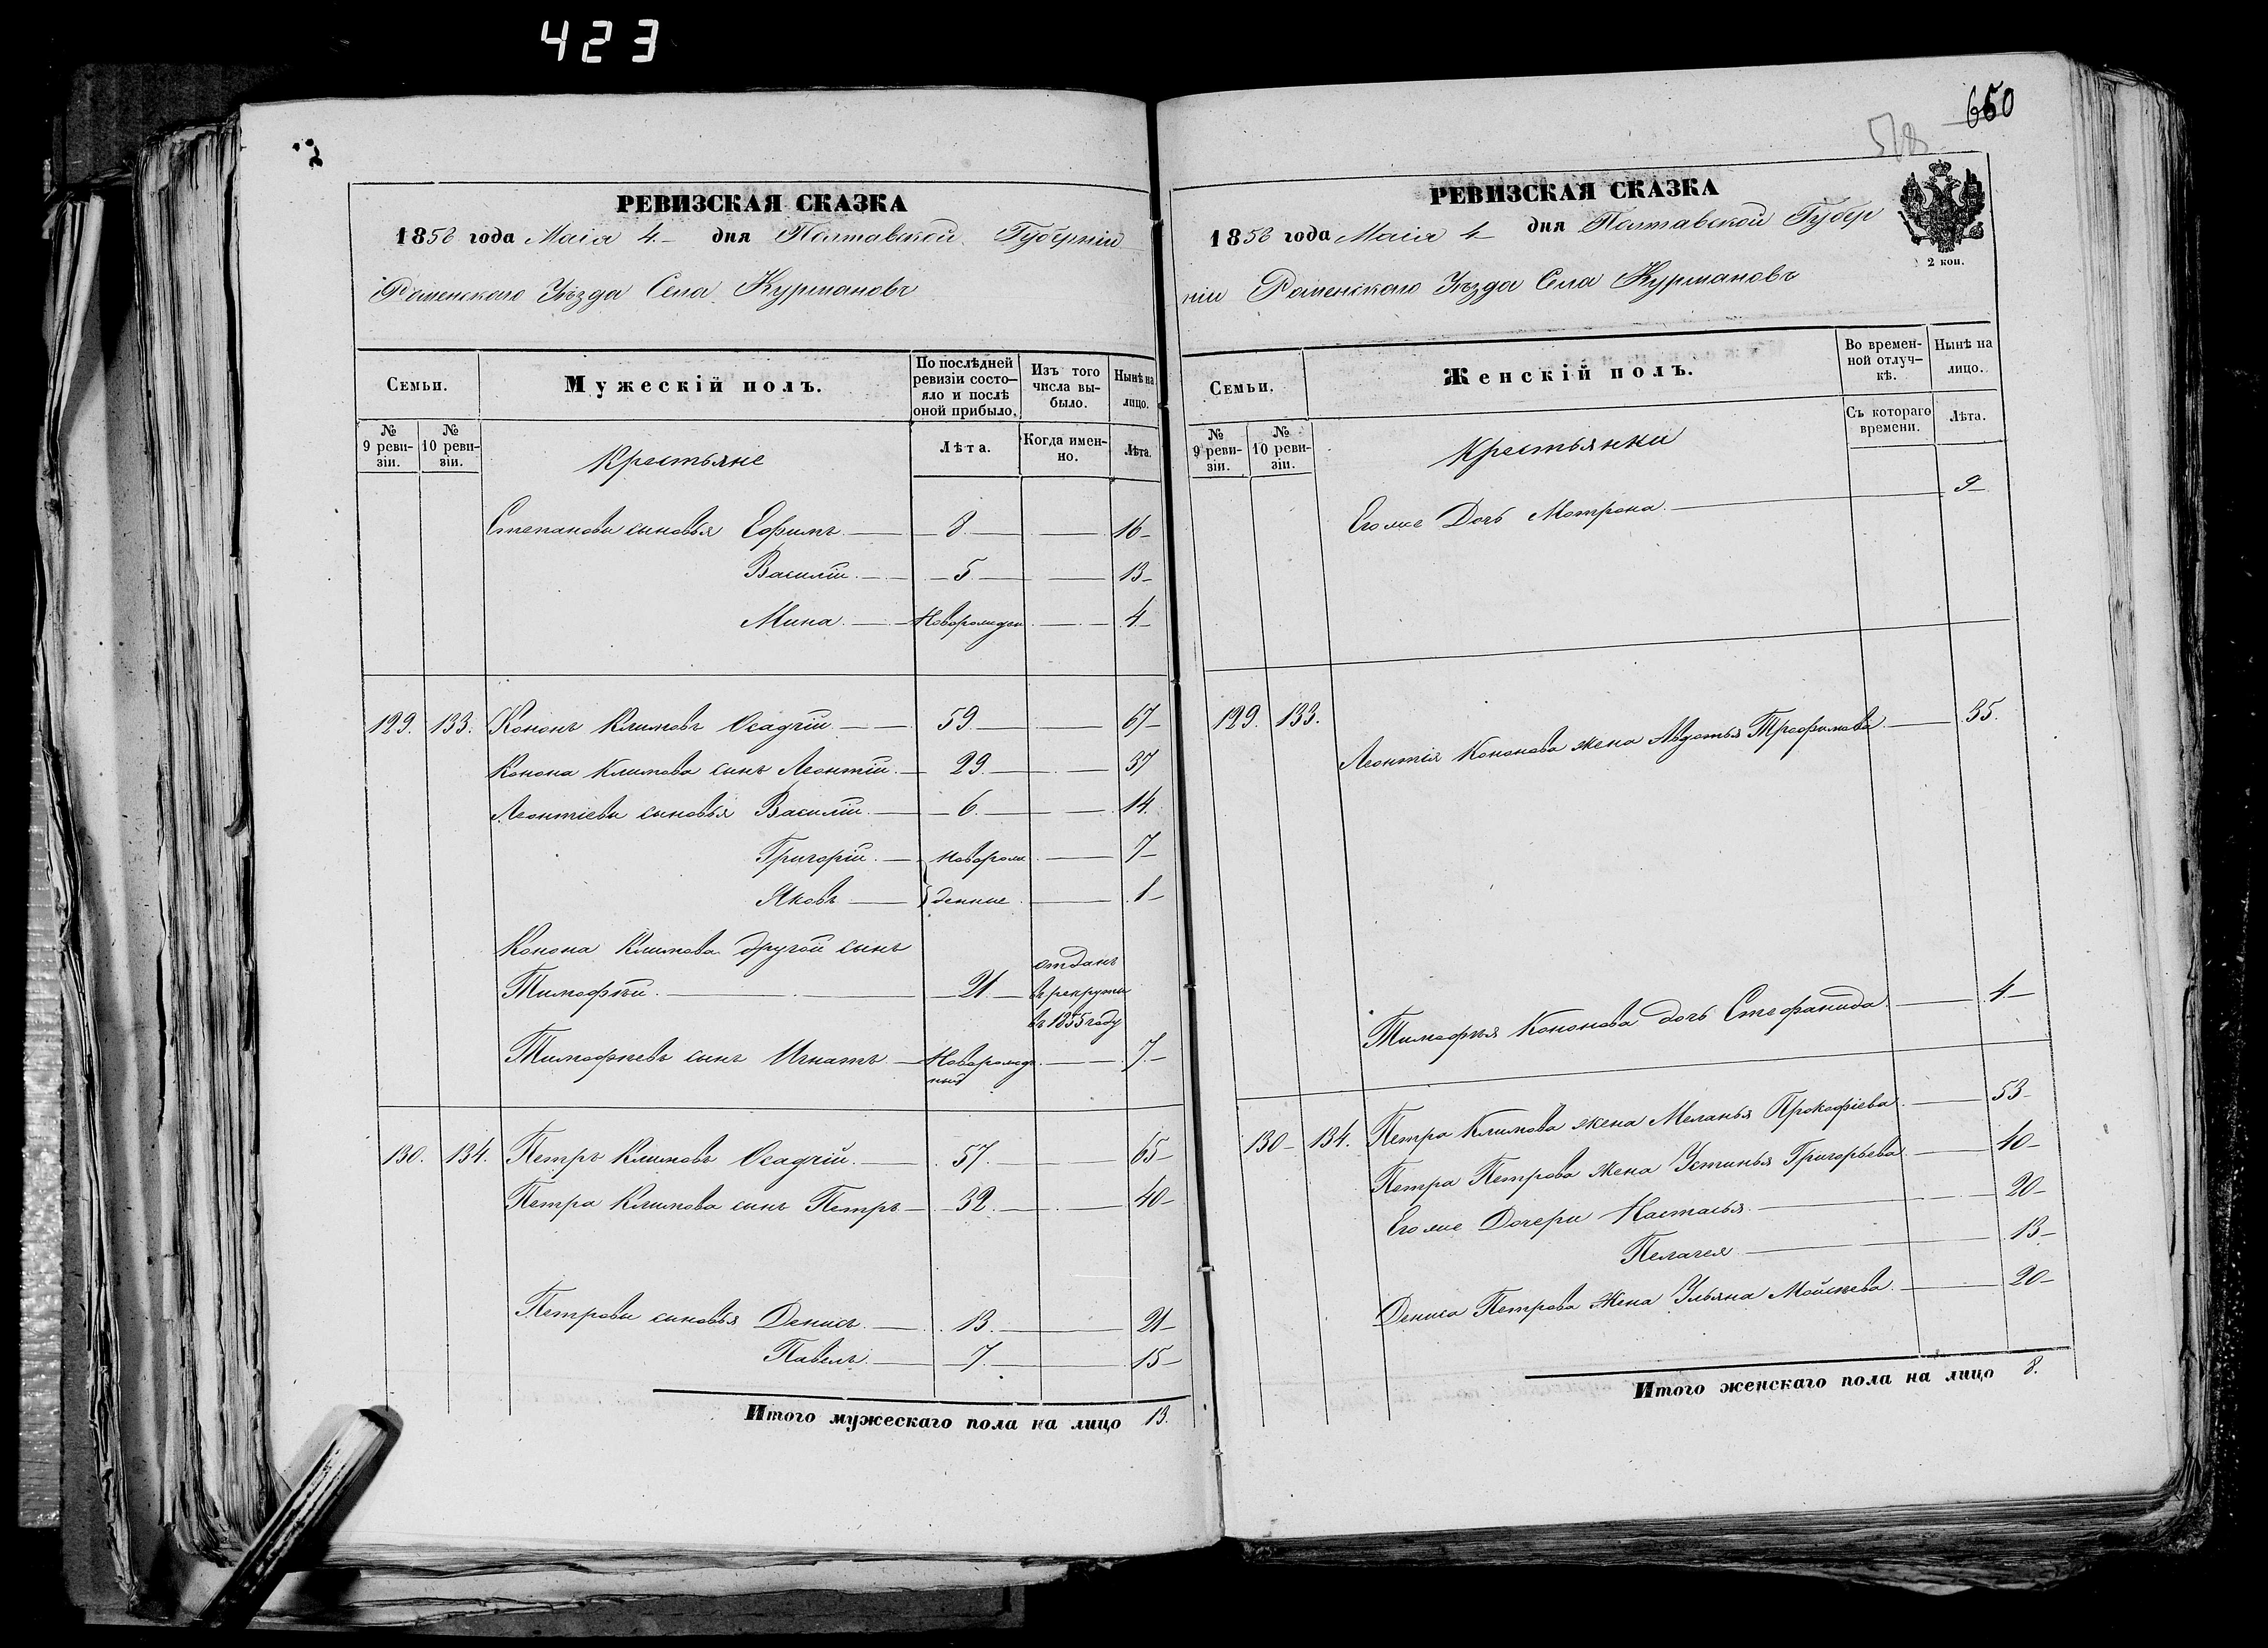 423
РЕВИЗСКАЯ СКАЗКА
1858 года Маія 4 дня Полтавской Губерніи
Роменского Уѣзда Села Курмановъ
Семьи.
Мужескій полъ.
По послѣдней ревизіи состо-
яло и послѣ
оной прибыло.
Изъ того
числа вы-
было.
Нынѣ на
лицо.
№
9 реви-
зіи.
№
10 реви-
зіи.
Крестьяне
Лѣта.
Когда имен-
но.
Лѣта.
Степановы сыновья Ефимъ 8 16
Василій 5 13
Мина Новорожден 4
129. 133. Кононъ Климовъ Осадчій 59 67
Конона Климова сынъ Леонтій 29 37
Леонтіевы сыновья Василій 6 14
Григорій новорож 7
Яковъ денные 1
Конона Климова другой сынъ
Тимофѣй 21 отданъ
въ рекруты
въ 1855 году
Тимофѣевъ сынъ Игнатъ Новорожд
ный 7
130. 134. Петръ Климовъ Осадчій 57 65
Петра Климова сынъ Петръ 32 40
Петровы сыновья Денисъ 13 21
Павелъ 7 15
Итого мужескаго пола на лицо 13.
650
578
РЕВИЗСКАЯ СКАЗКА
1858 года Маія 4 дня Полтавской Губер
ніи Роменского Уѣзда Села Курмановъ
2 коп.
Семьи.
Женскій полъ.
Во времен-
ной отлуч-
кѣ.
Нынѣ на
лицо.
№
9 реви-
зіи.
№
10 реви-
зіи.
Крестьянки
Съ котораго
времени.
Лѣта.
Его же Дочь Мотрона 9
129. 133. Леонтія Кононова жена Авдотья Трофимова 35.
Тимофѣя Кононова дочь Стефанида 4
130 134. Петра Климова жена Меланья Прокофіева 53
Петра Петрова жена Устинья Григорьева 40
Его же Дочери Настасья 20
Пелагея 13
Дениса Петрова Жена Ульяна Мойсѣева 20
Итого женскаго пола на лицо 8.